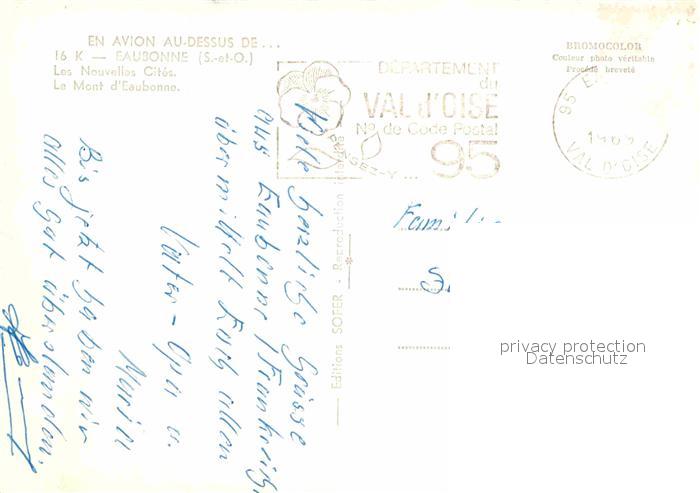 EN AVION AU-DESSUS DE...
16 K — EAUBONNE (S.-et-O.)
Les Nouvelles Cités.
Le Mont d'Eaubonne.
BROMOCOLOR
Couleur photo véritable
Procédé breveté
DÉPARTEMENT
du
VAL d'OISE
No de Code Postal
95
PENSEZ-Y...
95
VAL D'OISE
Editions SOFER - Reproduction interdite
Viele herzliche Grüsse
aus Eaubonne/Frankreich
übermittelt Euch allen
Vater-Opa u.
Maria
Bis jetzt haben wir
alles gut überstanden.
S.
privacy protection
Datenschutz